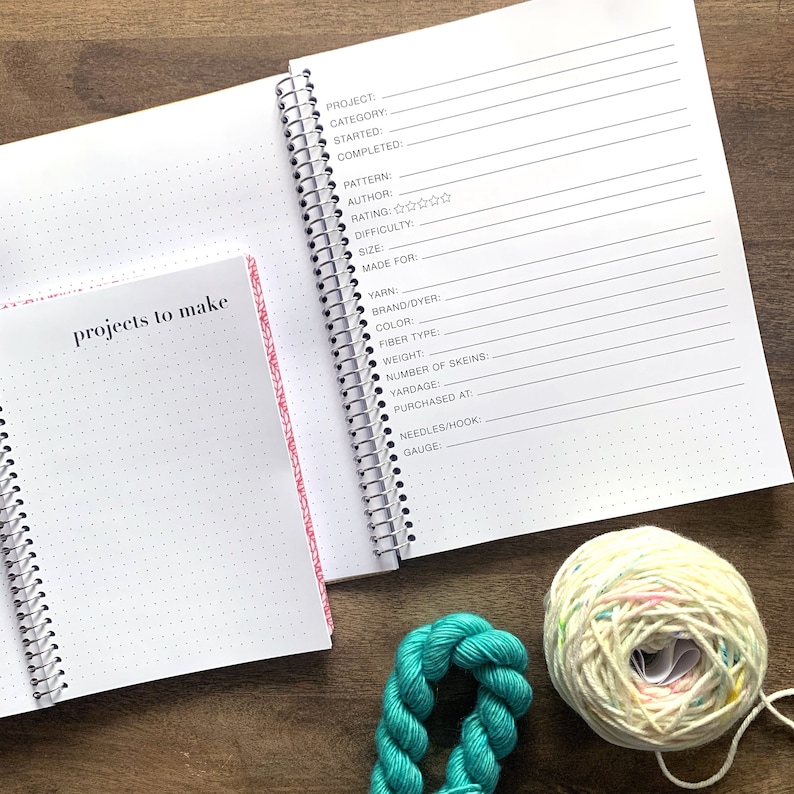 projects to make
PROJECT:
CATEGORY:
STARTED:
COMPLETED:
PATTERN:
AUTHOR:
RATING: ☆☆☆☆☆
DIFFICULTY:
SIZE:
MADE FOR:
YARN:
BRAND/DYER:
COLOR:
FIBER TYPE:
WEIGHT:
NUMBER OF SKEINS:
YARDAGE:
PURCHASED AT:
NEEDLES/HOOK:
GAUGE: